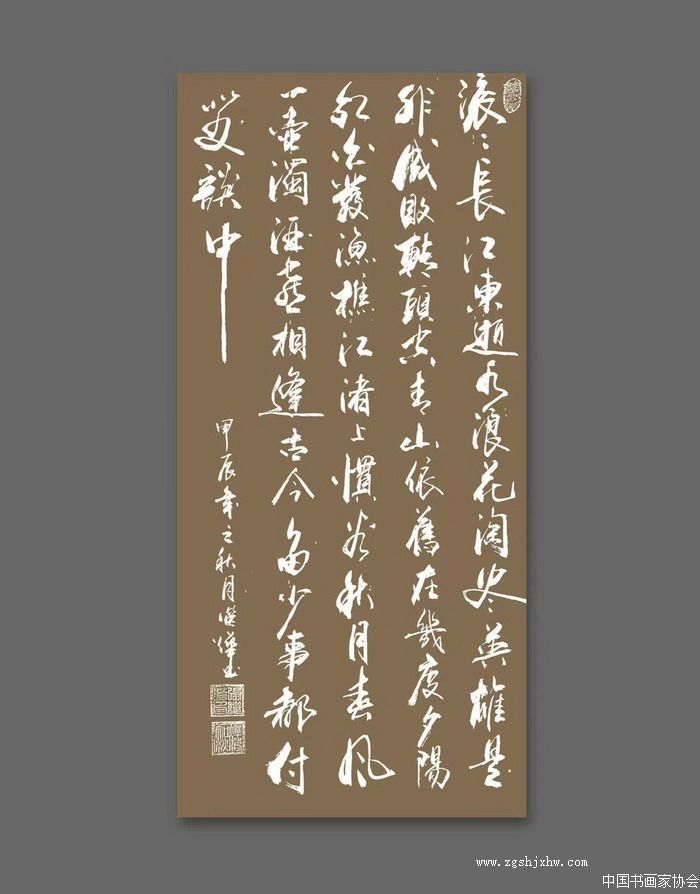 滚〻長江東逝水浪花淘尽英雄是
非成敗轉頭空青山依舊在幾度夕陽
红白發漁樵江渚上慣看秋月春风
一壺濁酒喜相逢古今多少事都付
笑談中
甲辰年之秋月
www.zgshjxhw.com
中国书画家协会